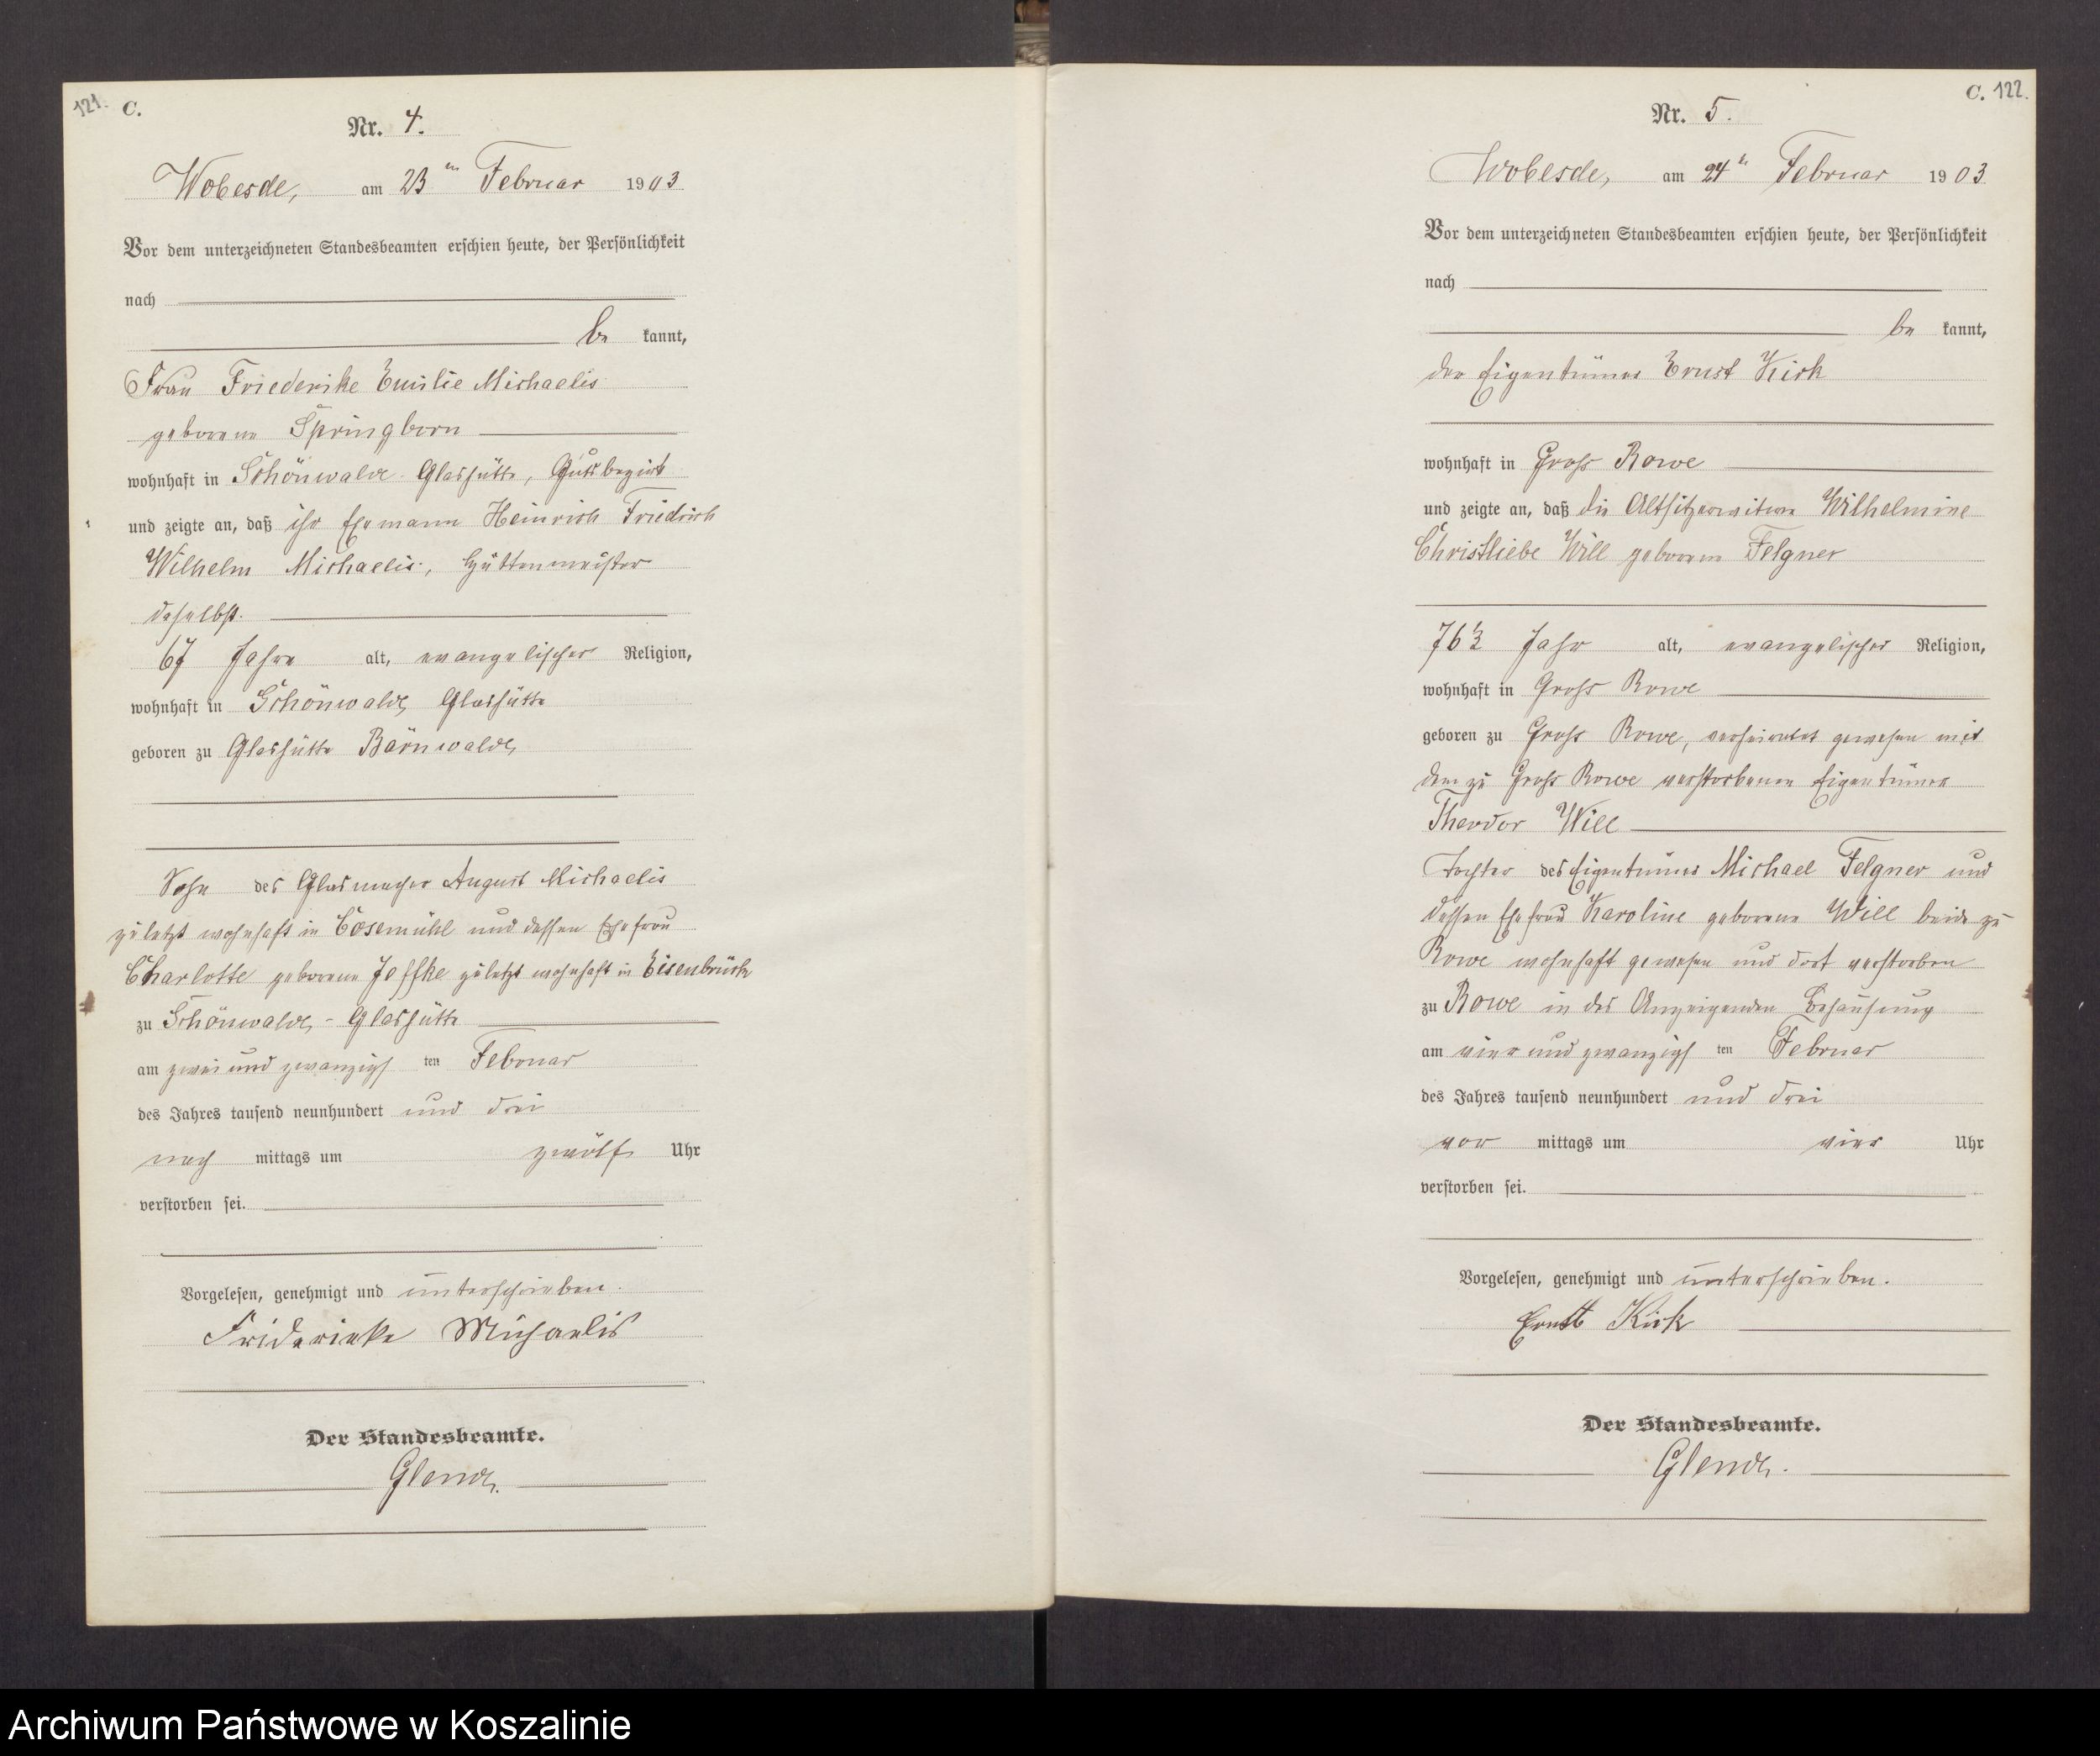 121. C.
Nr. 4.
Wobesde, am 23ten Februar 1903
Vor dem unterzeichneten Standesbeamten erschien heute, der Persönlichkeit
nach
be kannt,
Frau Friederike Emilie Michaelis
geborene Springborn
wohnhaft in Schönwalde Glashütte, Gutsbezirk
und zeigte an, daß ihr Ehemann Heinrich Friedrich
Wilhelm Michaelis, Hüttenmeister
daselbst.
67 Jahre alt, evangelischer Religion,
wohnhaft in Schönwalde Glashütte
geboren zu Glashütte Bärnwalde
Sohn des Glasmacher August Michaelis
zuletzt wohnhaft in Cosemühl und dessen Ehefrau
Charlotte geborene Jeffke zuletzt wohnhaft in Eisenbrück
zu Schönwalde - Glashütte
am zwei und zwanzigs ten Februar
des Jahres tausend neunhundert und drei
nach mittags um zwölf Uhr
verstorben sei.
Vorgelesen, genehmigt und unterschrieben.
Friderieke Michaelis
Der Standesbeamte.
Glende.
C. 122.
Nr. 5.
Wobesde, am 24te Februar 1903
Vor dem unterzeichneten Standesbeamten erschien heute, der Persönlichkeit
nach
be kannt,
der Eigentümer Ernst Kirk
wohnhaft in Gross Rowe
und zeigte an, daß die Altsitzerwitwe Wilhelmine
Christliebe Will geborene Felgner
76 1/2 Jahr alt, evangelischer Religion,
wohnhaft in Gross Rowe
geboren zu Gross Rowe, verheiratet gewesen mit
dem zu Gross Rowe verstorbenen Eigentümer
Theodor Will
Tochter des Eigentümer Michael Felgner und
dessen Ehefrau Karoline geborene Will beide zu
Rowe wohnhaft gewesen und dort verstorben
zu Rowe in des Anzeigenden Behausung
am vier und zwanzigs ten Februar
des Jahres tausend neunhundert und drei
vor mittags um vier Uhr
verstorben sei.
Vorgelesen, genehmigt und unterschrieben.
Ernst Kirk
Der Standesbeamte.
Glende.
Archiwum Państwowe w Koszalinie